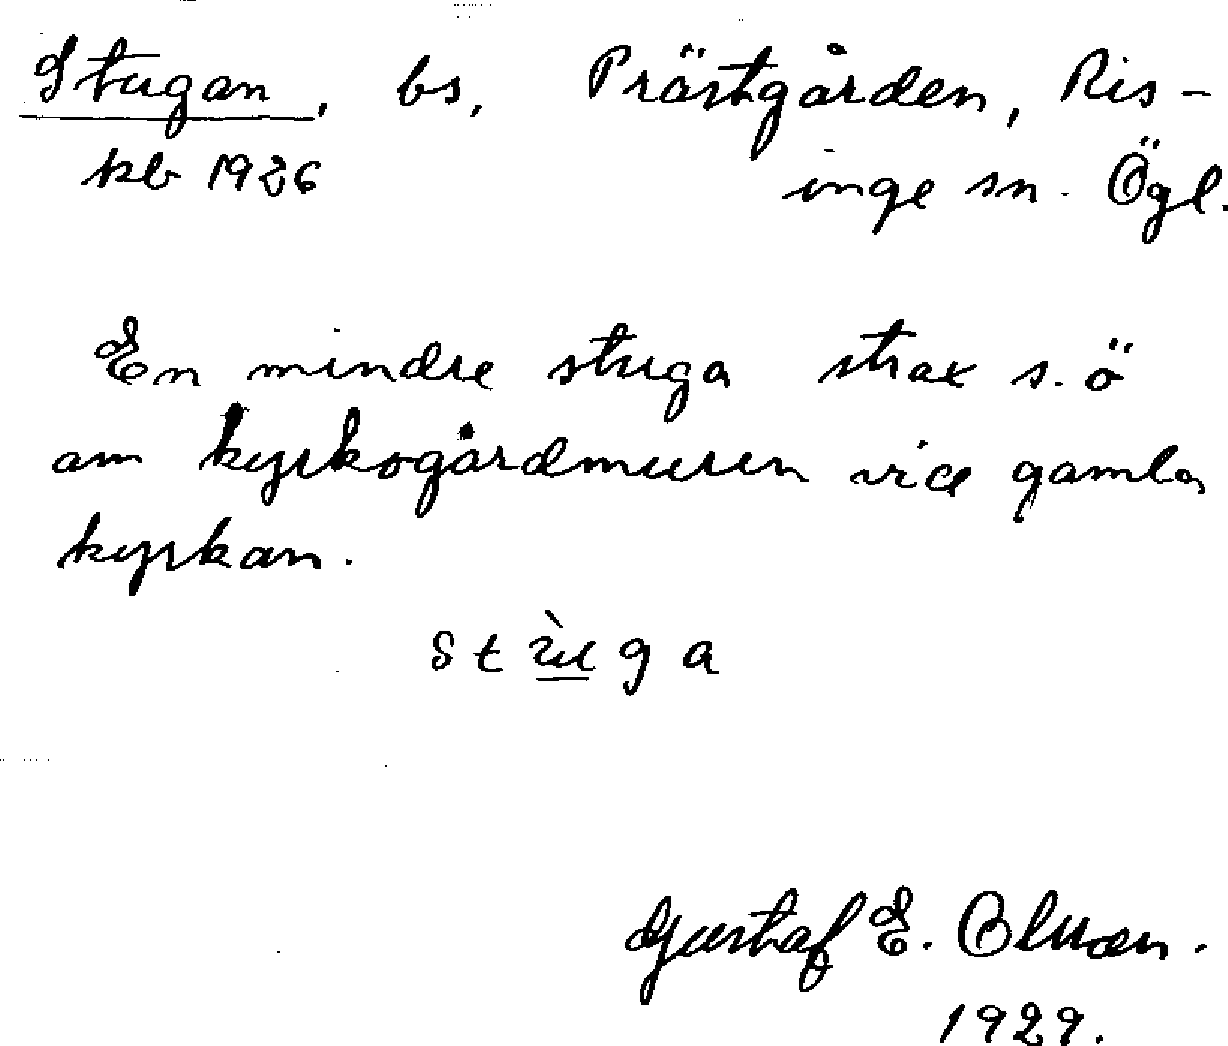 Stugan, bs, Prästgården, Ris-
kb 1926 inge sn. Ögl.
En mindre stuga strax s.ö
om kyrkogårdmuren vid gamla
kyrkan.
stùga
Gustaf E. Olsson.
1929.